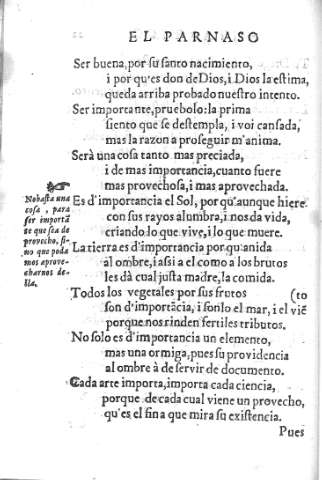 EL PARNASO
Ser buena, por su santo nacimiento,
i por qu'es don de Dios, i Dios la estima,
queda arriba probado nuestro intento.
Ser importante, pruebolo: la prima
siento que se destempla, i voi cansada,
mas la razon a proseguir m'anima.
Serà una cosa tanto mas preciada,
i de mas importancia, cuanto fuere
mas provechosa, i mas aprovechada.
Es d'importancia el Sol, por qu'aunque hiere
con sus rayos alumbra, i nos da vida,
criando lo que vive, i lo que muere.
La tierra es d'importancia por qu'anida
al ombre, i assi a el como a los brutos
les dà cual justa madre, la comida.
Todos los vegetales por sus frutos (to
son d'importãcia, i sonlo el mar, i el viẽ
porque nos rinden fertiles tributos.
No solo es d'importancia un elemento,
mas una ormiga, pues su providencia
al ombre à de servir de documento.
Cada arte importa, importa cada ciencia,
porque de cada cual viene un provecho,
qu'es el fin a que mira su existencia.
Pues
No basta una
cosa, para
ser importã
te que sea de
provecho, si-
no que poda
mos aprove-
charnos de-
lla.